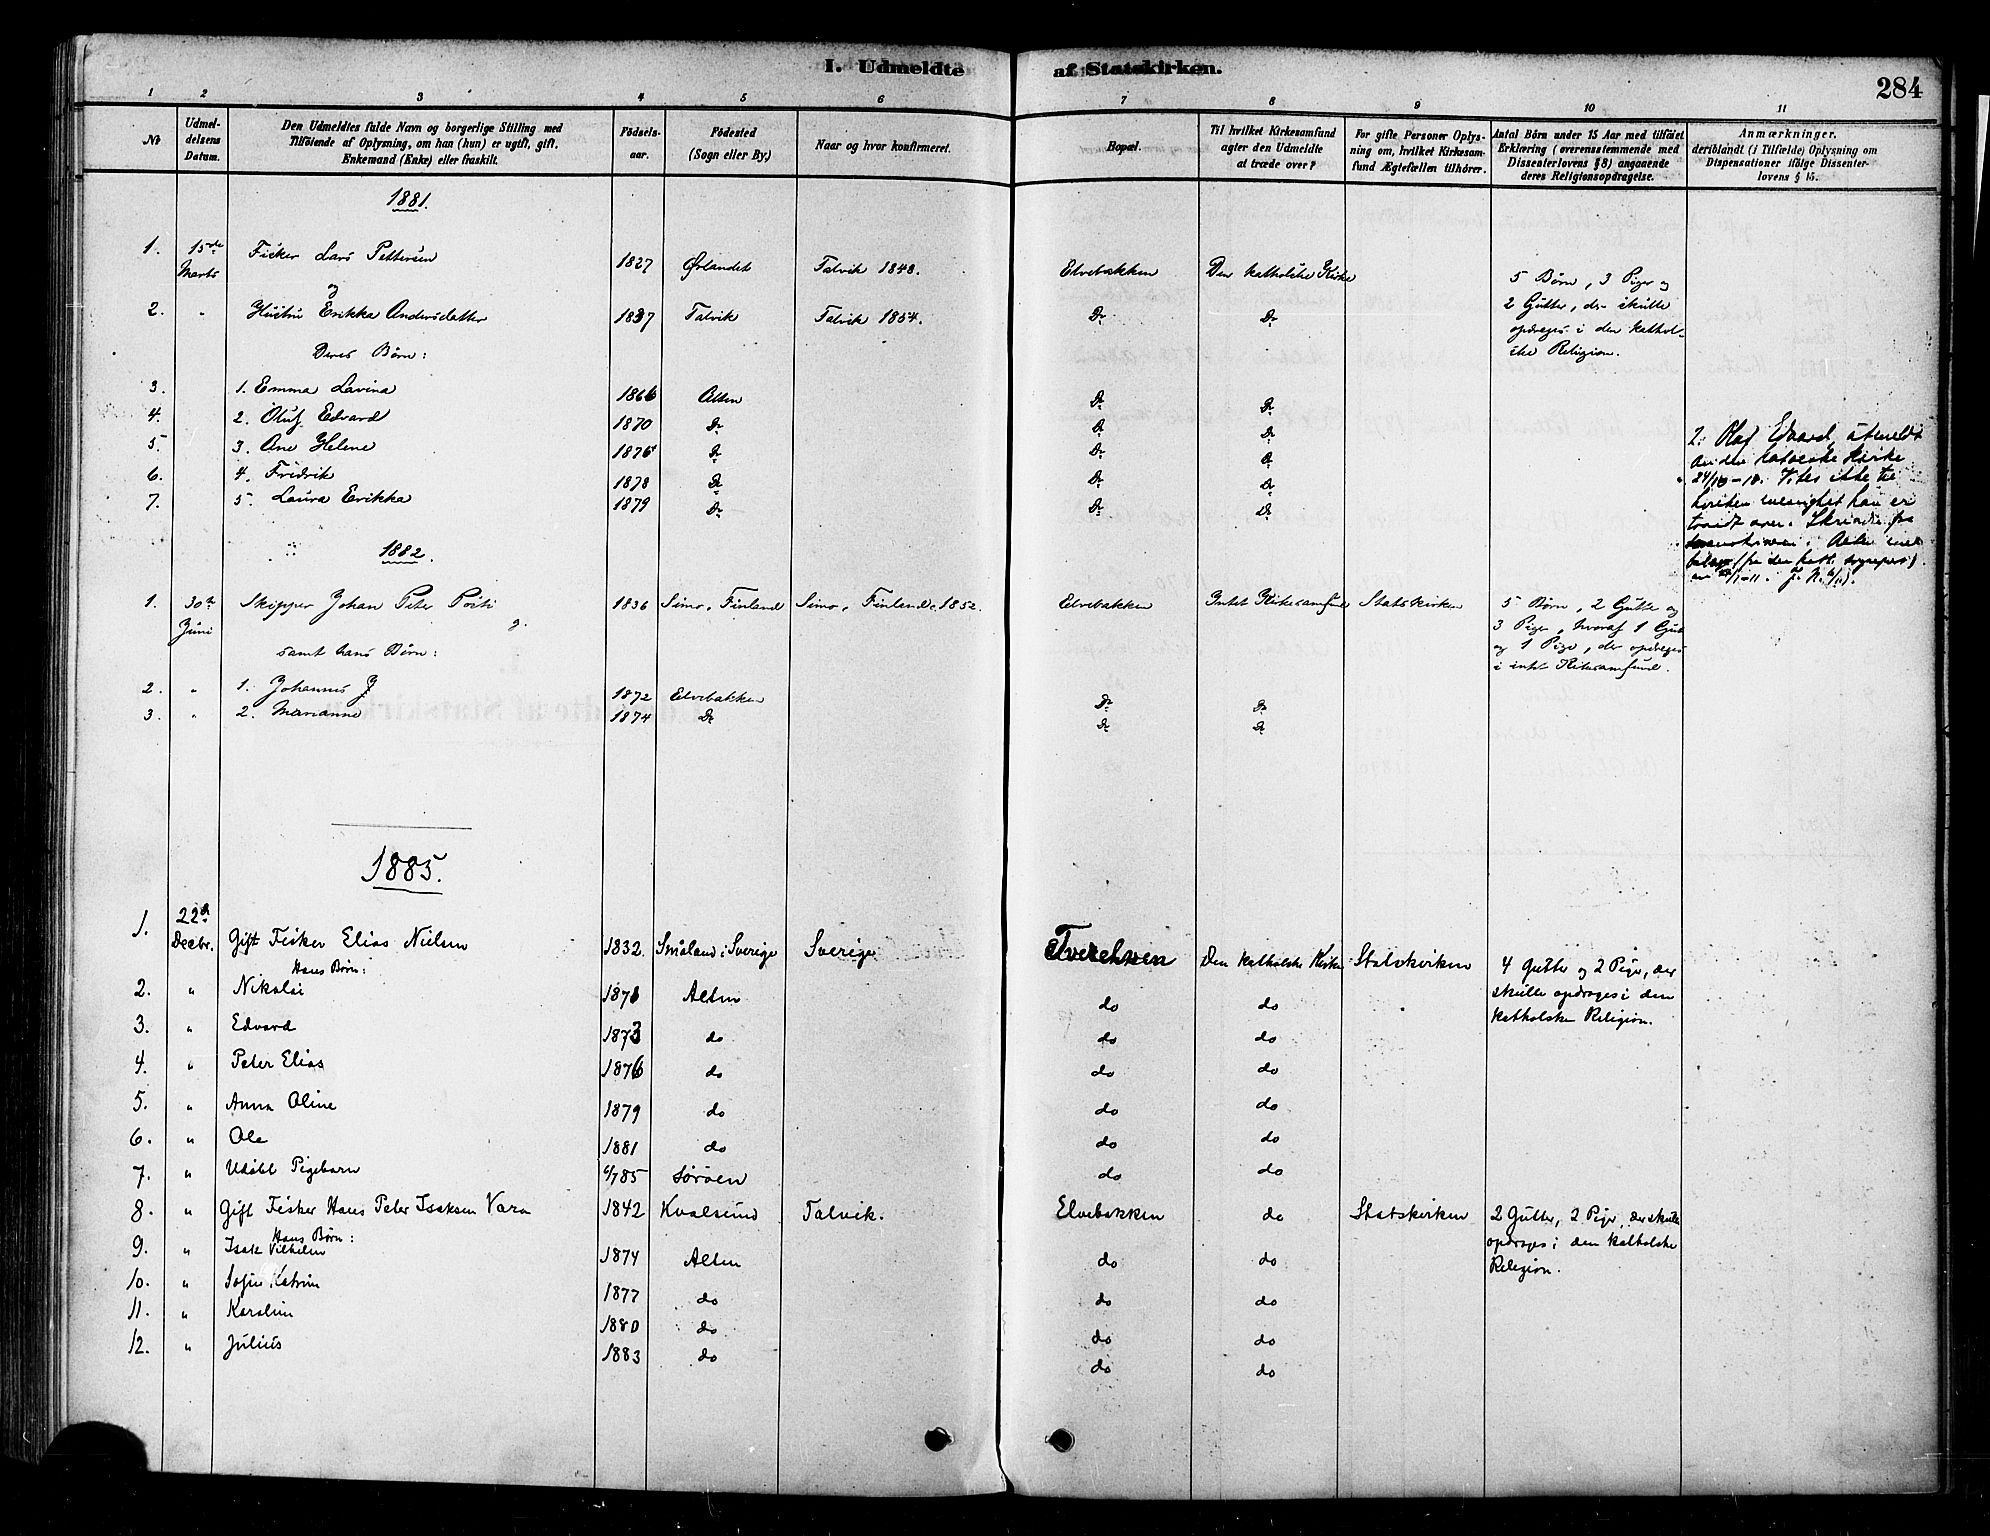 I. Udmeldte af Statskirken.
284
1 2 3 4 5 6 7 8 9 10 11
No
Udmeldelsens Datum.
Den Udmeldtes fulde Navn og borgerlige Stilling med
Tilföiende af Oplysning, om han (hun) er ugift, gift.
Enkemand (Enke) eller fraskilt.
Födselsaar.
Födested
(Sogn eller By.)
Naar og hvor konfirmeret.
Bopæl.
Til hvilket Kirkesamfund
agter den Udmeldte
at træde over?
For gifte Personer Oplysning om, hvilket Kirkesamfund Ægtefællen tilhörer.
Antal Börn under 15 Aar med tilföiet
Erklæring (overensstemmende med
Dissenterlovens § 8) angaaende
deres Religionsopdragelse.
Anmærkninger.
deriblandt (i Tilfælde) Oplysning om
Dispensationer ifölge Dissenterlovens § 15.
1881.
1. 15de Marts Fisker Lars Pettersen 1827 Ørlandet Talvik 1848. Elvebakken Den katholske Kirke 5 Børn, 3 Piger og
og
2. " Hustru Erikka Andersdatter 1837 Talvik Talvik 1854. Do Do 2 Gutter, der skulle
opdrages i den kathol-
Deres Børn: ske Religion.
3. 1. Emma Lavina 1866 Alten Do Do
4. 2. Oluf Edvard 1870 Do Do Do
5 3. Ane Helene 1875 Do Do Do
6. 4. Fridrik 1878 Do Do Do
7. 5. Laura Erikka 1879 Do Do Do
2. Olaf Edvard, utmeldt
av den katolske Kirke
24/10-10. Vites ikke til
hvilken menighet han er
traadt over. Skrivelse fra
i Alten med
bilag (fra den kath. sognepr.)
1882.
1. 30te Juni Skipper Johan Peter Poiti 1836 Simo, Finland Simo, Finland, 1852. Elvebakken Intet Kirkesamfund Statskirken 5 Børn, 2 Gutte og
3 Piger, hvoraf 1 Gut
samt hans Børn: og 1 Pige, der opdrages
i intet Kirkesamfund.
2. " 1. Johannes J 1872 Elvebakken Do Do
3. " 2. Marianne 1874 Do Do Do
1885.
1. 22d Decbr. Gift Fisker Elias Nielsen 1832. Småland i Sverige Sverige Tverelven Den katholske Kirke Statskirken 4 Gutter og 2 Piger, der
Hans Børn: skulle opdrages i den
2. " Nikolai 1871 Alten do do katholske Religion.
3. " Edvard 1873 do do do
4. " Peter Elias 1876 do do do
5. " Anna Oline 1879 do do do
6. " Ole 1881 do do do
7. " Udøbt Pigebarn 6/785 Sørøen do do
8. " Gift Fisker Hans Peter Isaksen Vara 1842 Kvalsund Talvik. Elvebakken do Statskirken 2 Gutter, 2 Piger, der skulle
Hans Børn: opdrages i den katholske
9. " Isak Vilhelm 1874 Alten do do Religion.
10. " Sofie Katrine 1877 do do do
11. " Karoline 1880 do do do
12. " Julius 1883 do do do